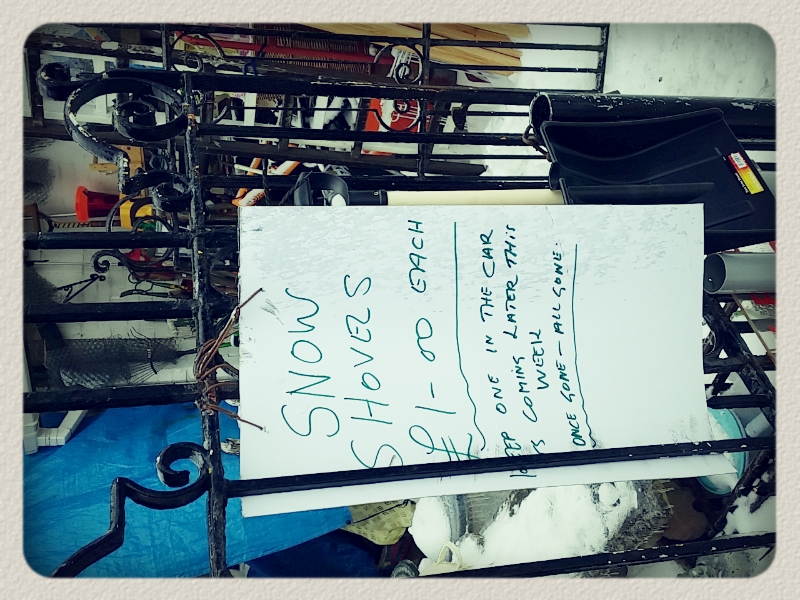 SNOW
SHOVELS
£1-00 EACH
KEEP ONE IN THE CAR
COMING LATER THIS
WEEK
ONCE GONE - ALL GONE.